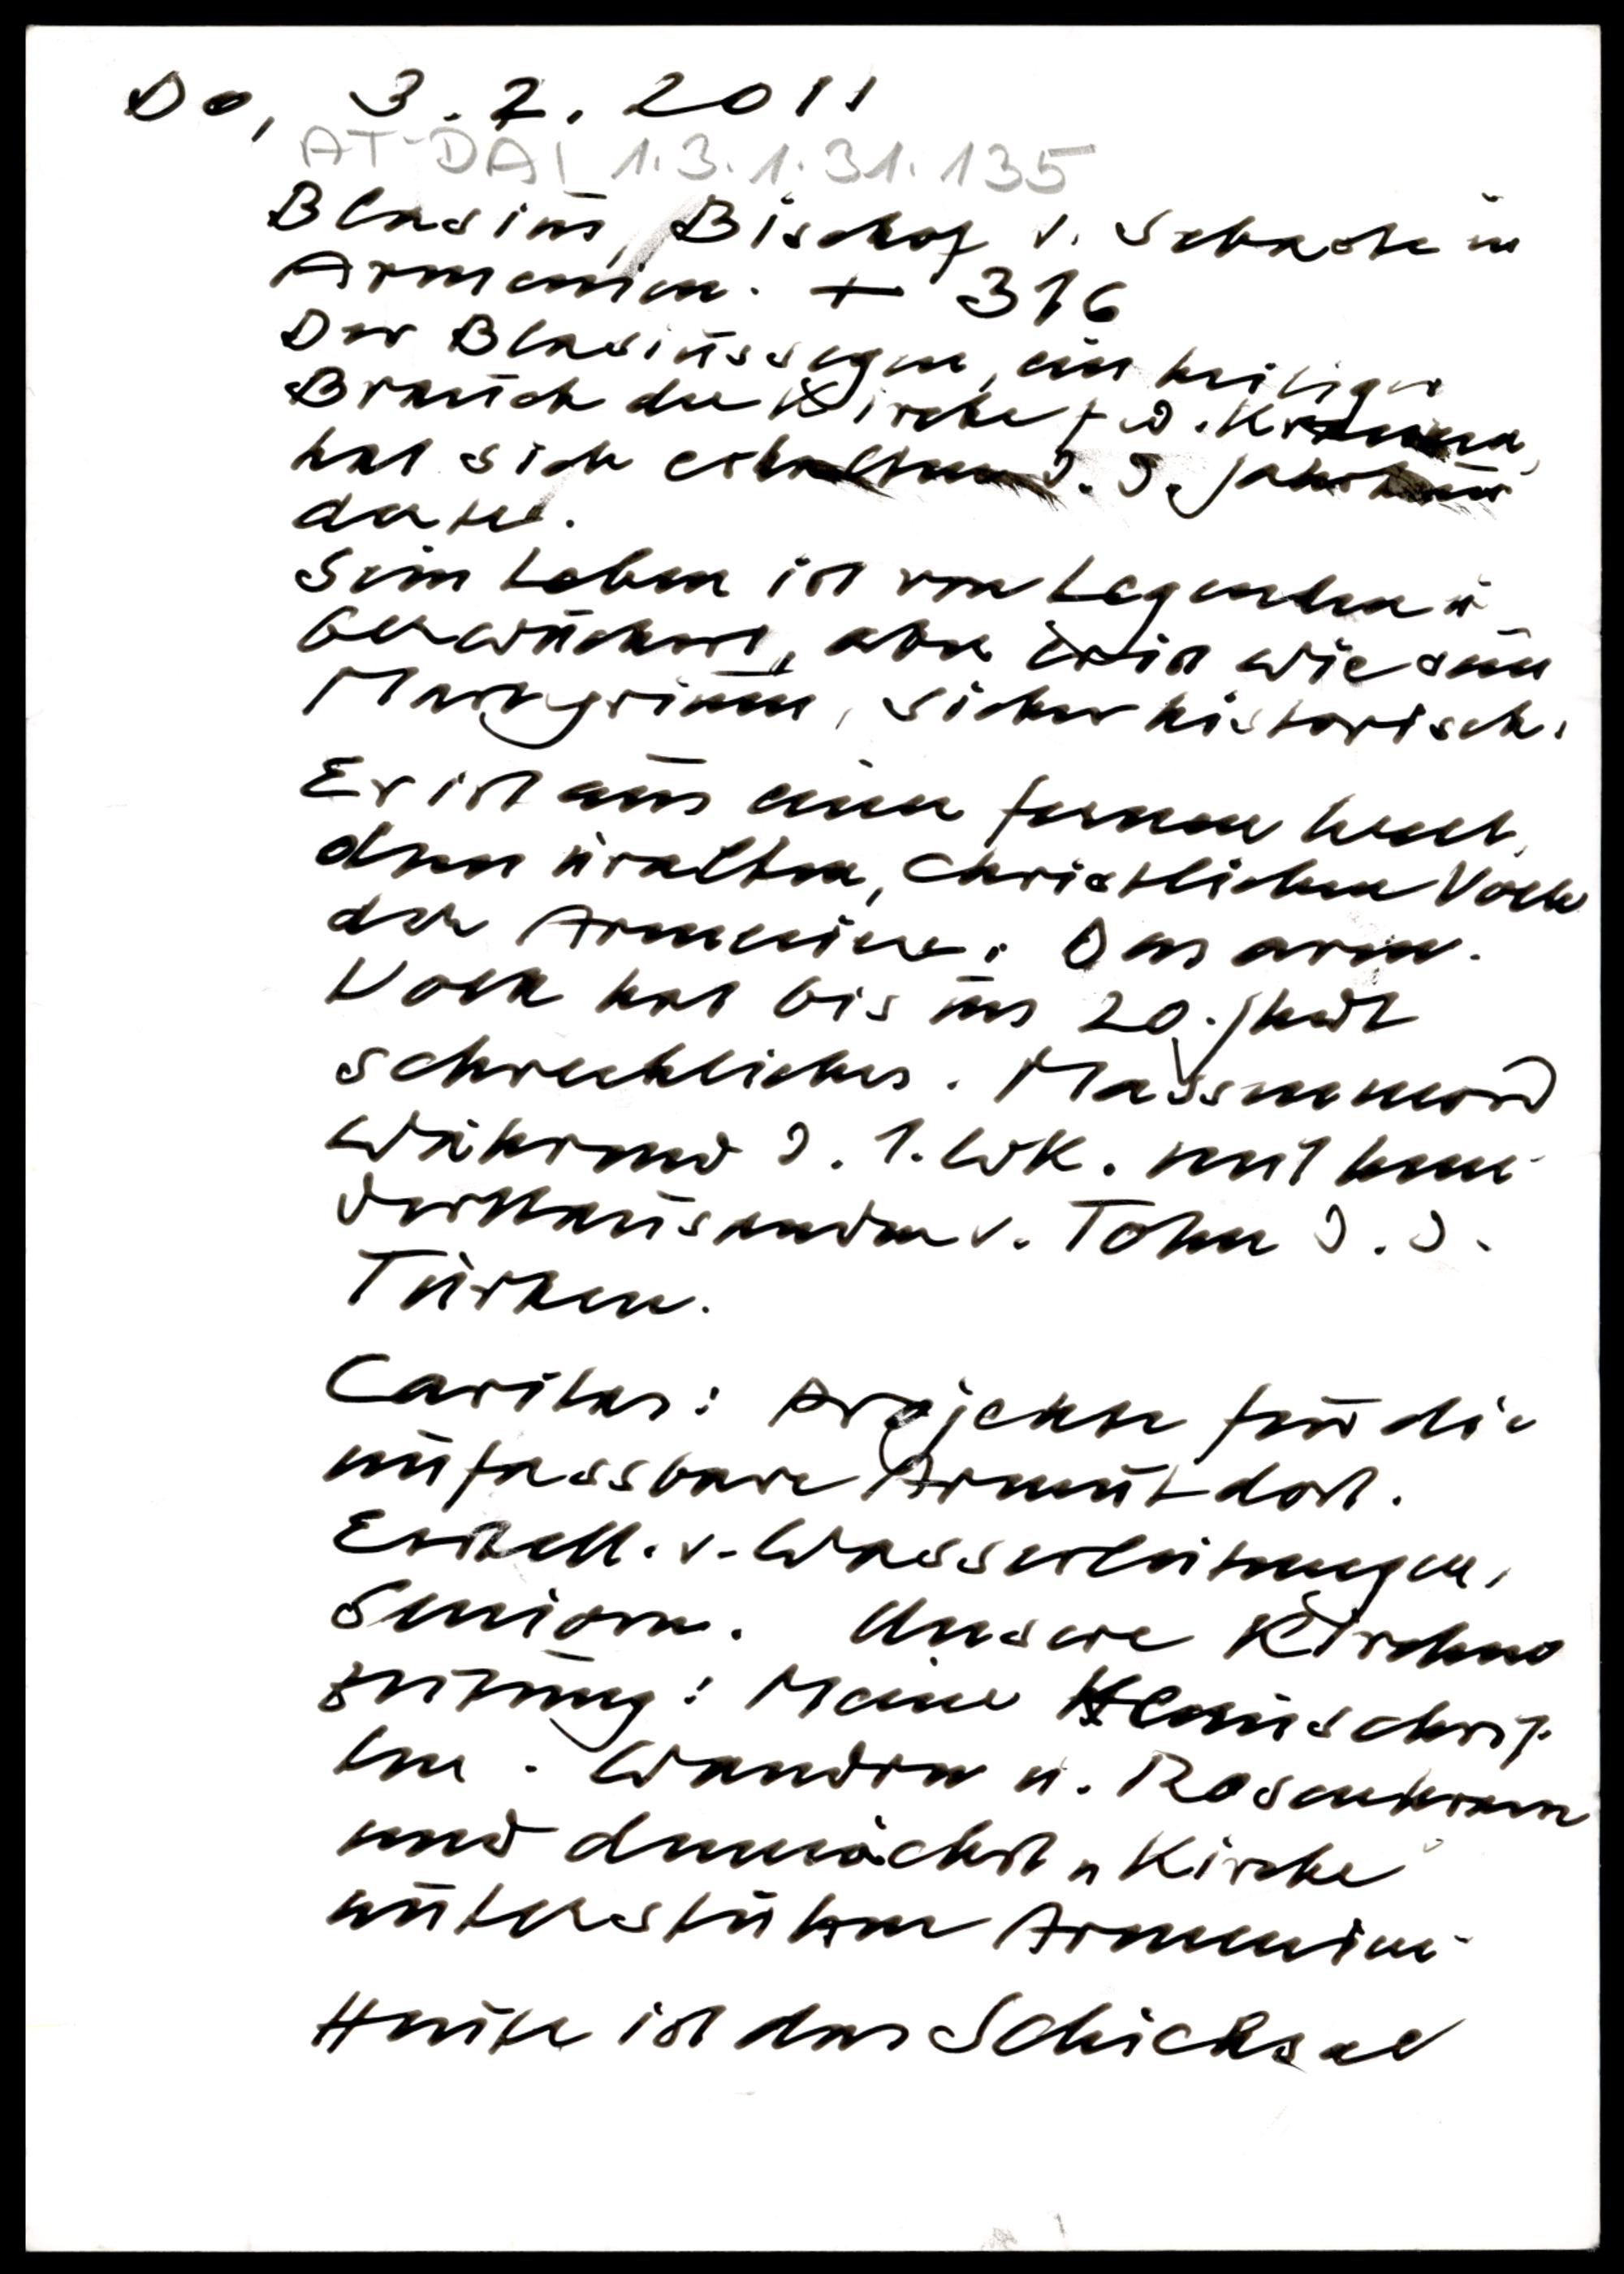 Do, 3.2.2011
AT-DAI 1.3.1.31.135
Blasius, Bischof v. Sebaste in
Armenien. + 316
Der Blasiussegen, ein heiliger
Brauch der Kirche f. d. Kranken,
hat sich erhalten d. d. Jahrhun
derte.
Sein Leben ist von Legenden ü
berwuchert, aber er ist wie sein
Martyrium, sicher historisch.
Er ist aus einer fernen Welt,
dem uralten, christlichen Volk
der Armenier. Das arm.
Volk hat bis ins 20. Jhdt
schreckliches. Massenmord
während d. 1. WK. mit hun-
derttausenden v. Toten d. d.
Türken.
Caritas: Projekte für die
unfassbare Armut dort.
Erstell. v. Wasserleitungen,
Senioren. Unsere Kirchen
zeitung: Meine Kleinschrif-
ten. Wandern u. Rosenkranz
und demnächst „Kirche"
unterstützen Armenien.
Heute ist das Schicksal